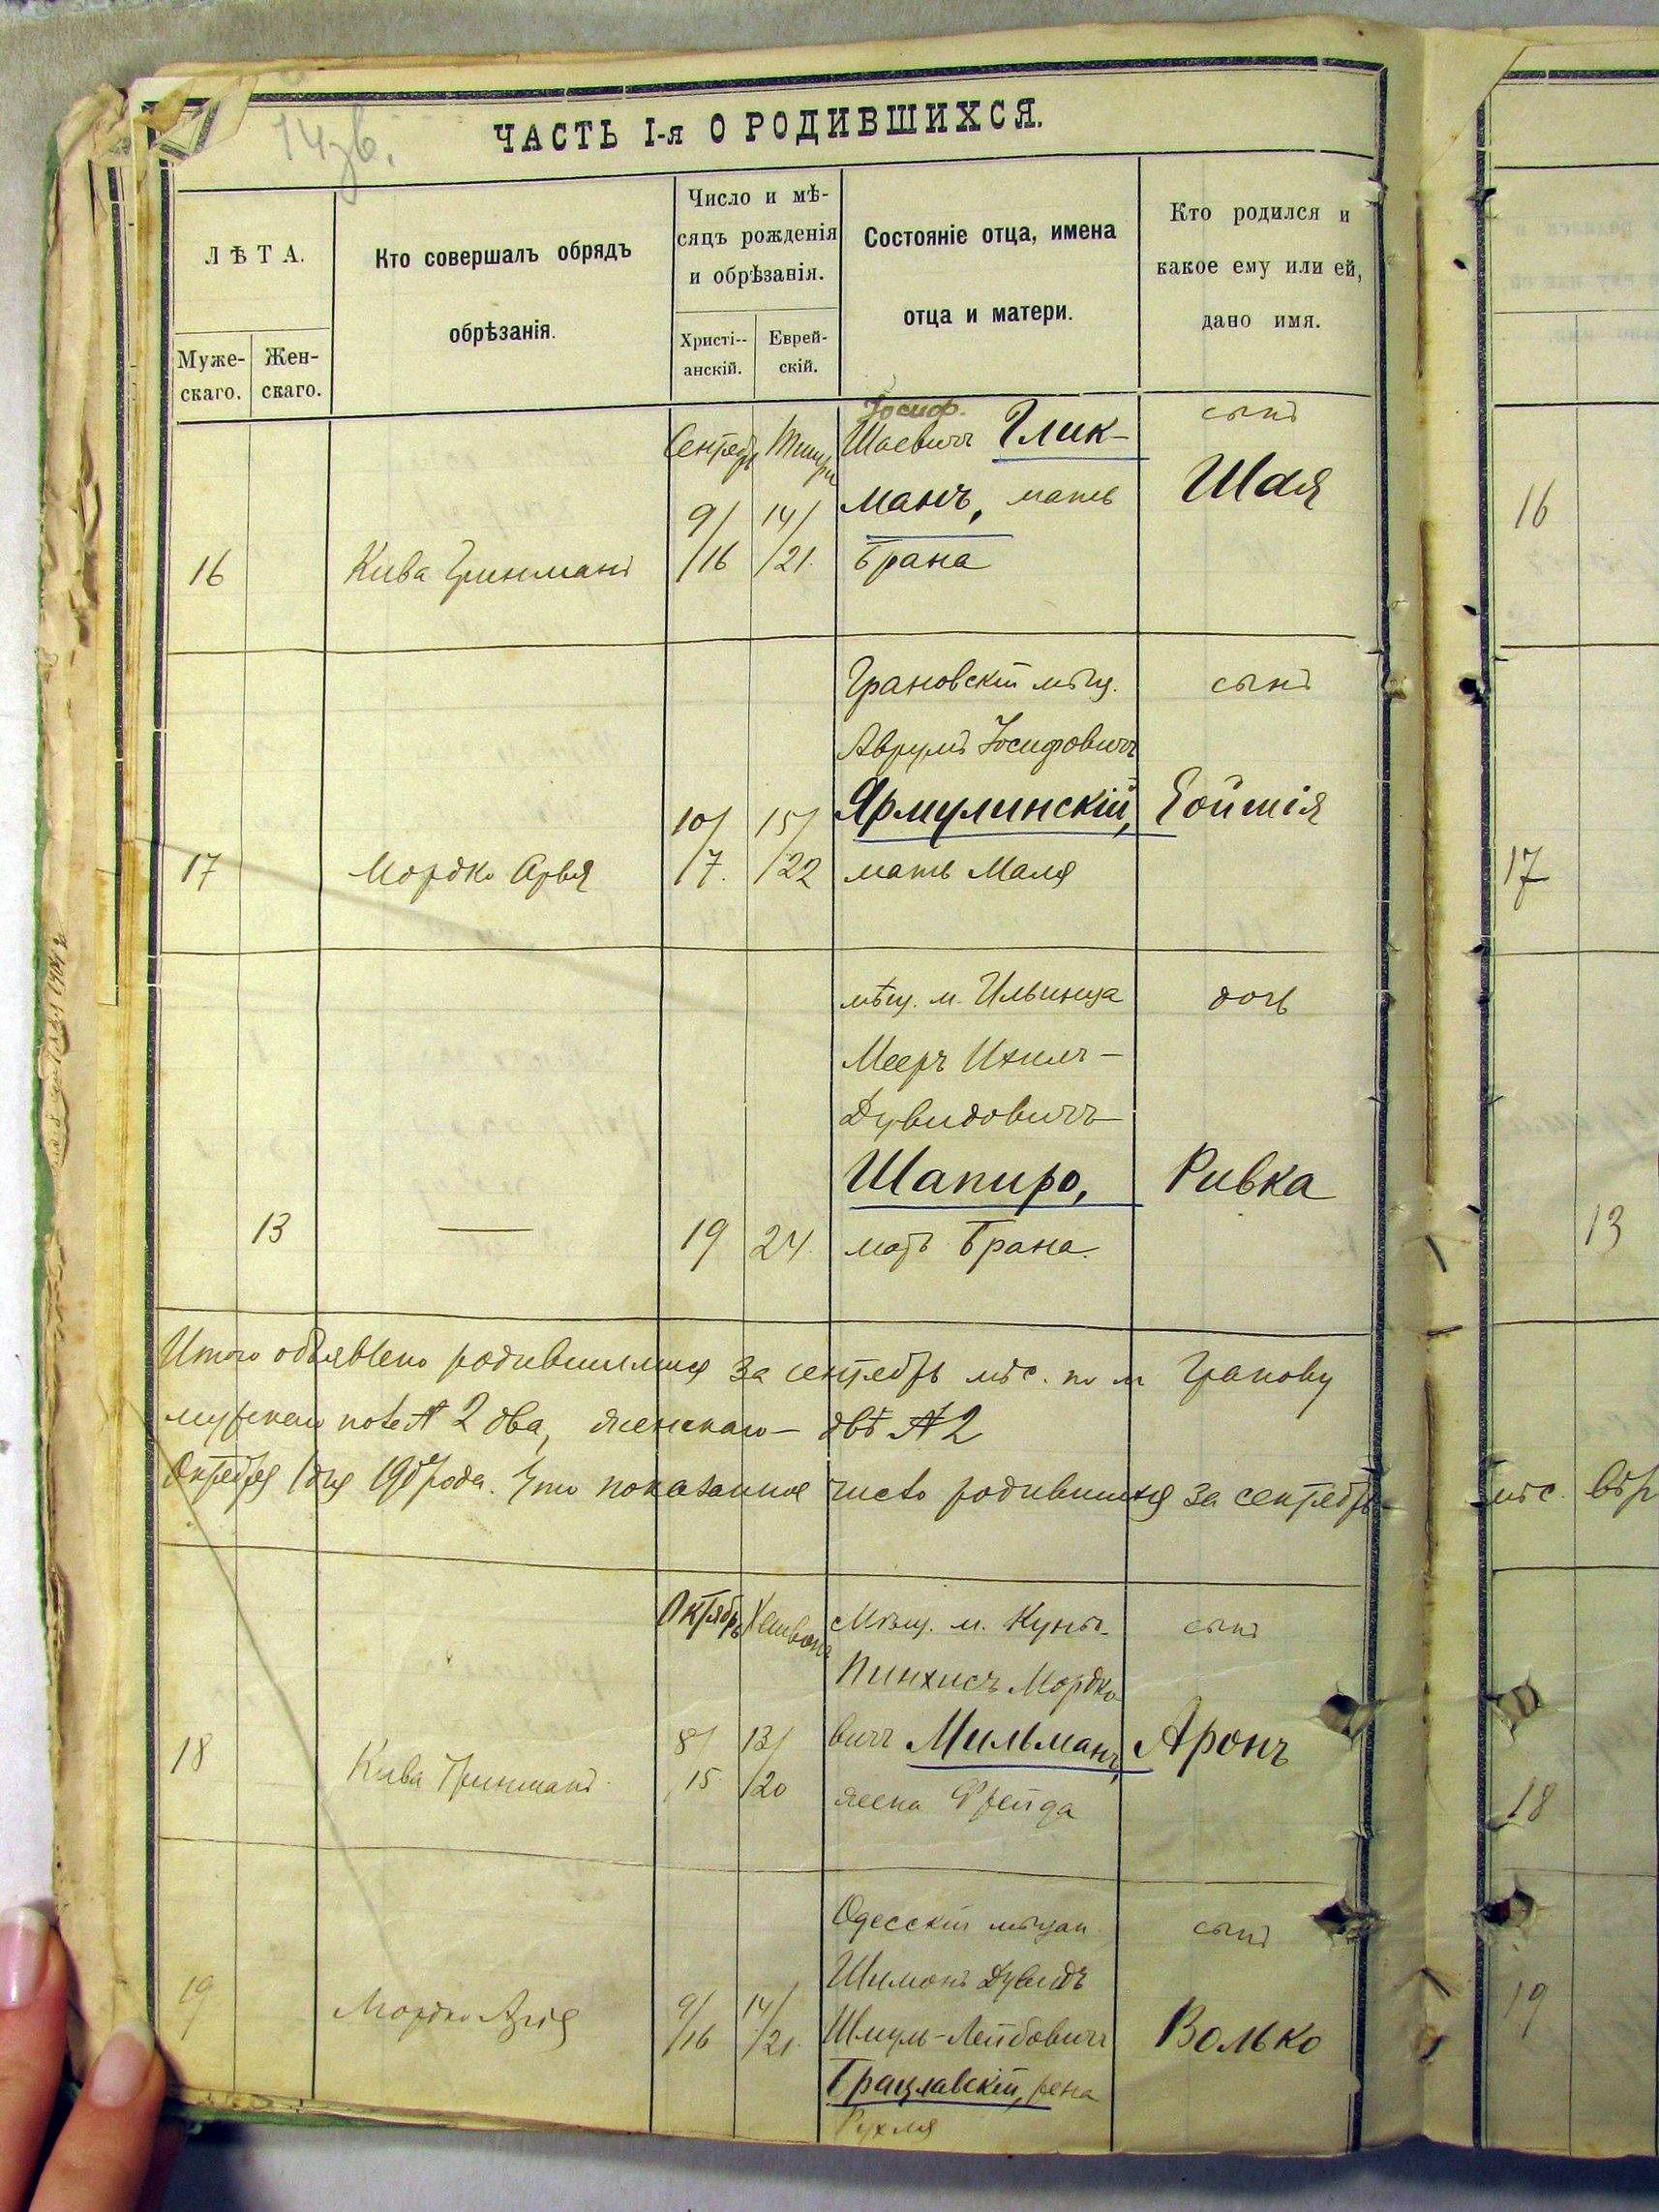 14зв.
ЧАСТЬ I-я О РОДИВШИХСЯ.
ЛѢТА.
Муже-
скаго.
Жен-
скаго.
Кто совершалъ обрядъ
обрѣзанія.
Число и мѣ-
сяцъ рожденія
и обрѣзанія.
Христі--
анскій.
Еврей-
скій.
Состояніе отца, имена
отца и матери.
Кто родился и
какое ему или ей,
дано имя.
16
Кива Гринманъ
Сентябр
9/
/16
Тишри
14/
/21.
Іосиф.
Шаевичъ Глик-
манъ, мать
Брана
сынъ
Шая
17
Мордко Арья
10/
/7.
15/
/22
Грановскій мѣщ.
Аврумъ Іосифовичъ
Ярмулинскій,
мать Маля
сынъ
13
19
24.
мѣщ. м. Ильинца
Мееръ Ихилъ-
Дувидовичъ
Шапиро,
мать Брана.
дочь
Ривка
Итого объявлено родившимися за сентябрь мѣс. по м Гранову
мужскаго пола № 2 два, женскаго - двѣ № 2
Октября 1 дня года. Что показанное число родившихся за сентябрь
18
Кива Гринманъ
Октябрь
8/
15
Хешвонъ
13/
/20
Мѣщ. м. Куны.
Пинхисъ Мордко-
вичъ Мильманъ,
жена Фрейда
сынъ
Аронъ
19
Мордко Арія
9/
/16
14/
/21.
Одесскій мѣщан.
Шимонъ Дувидъ
Шмуль-Лейбовичъ
Брацлавскій, жена
Рухля
сынъ
Волько
16
17
13
мѣс.
18
19